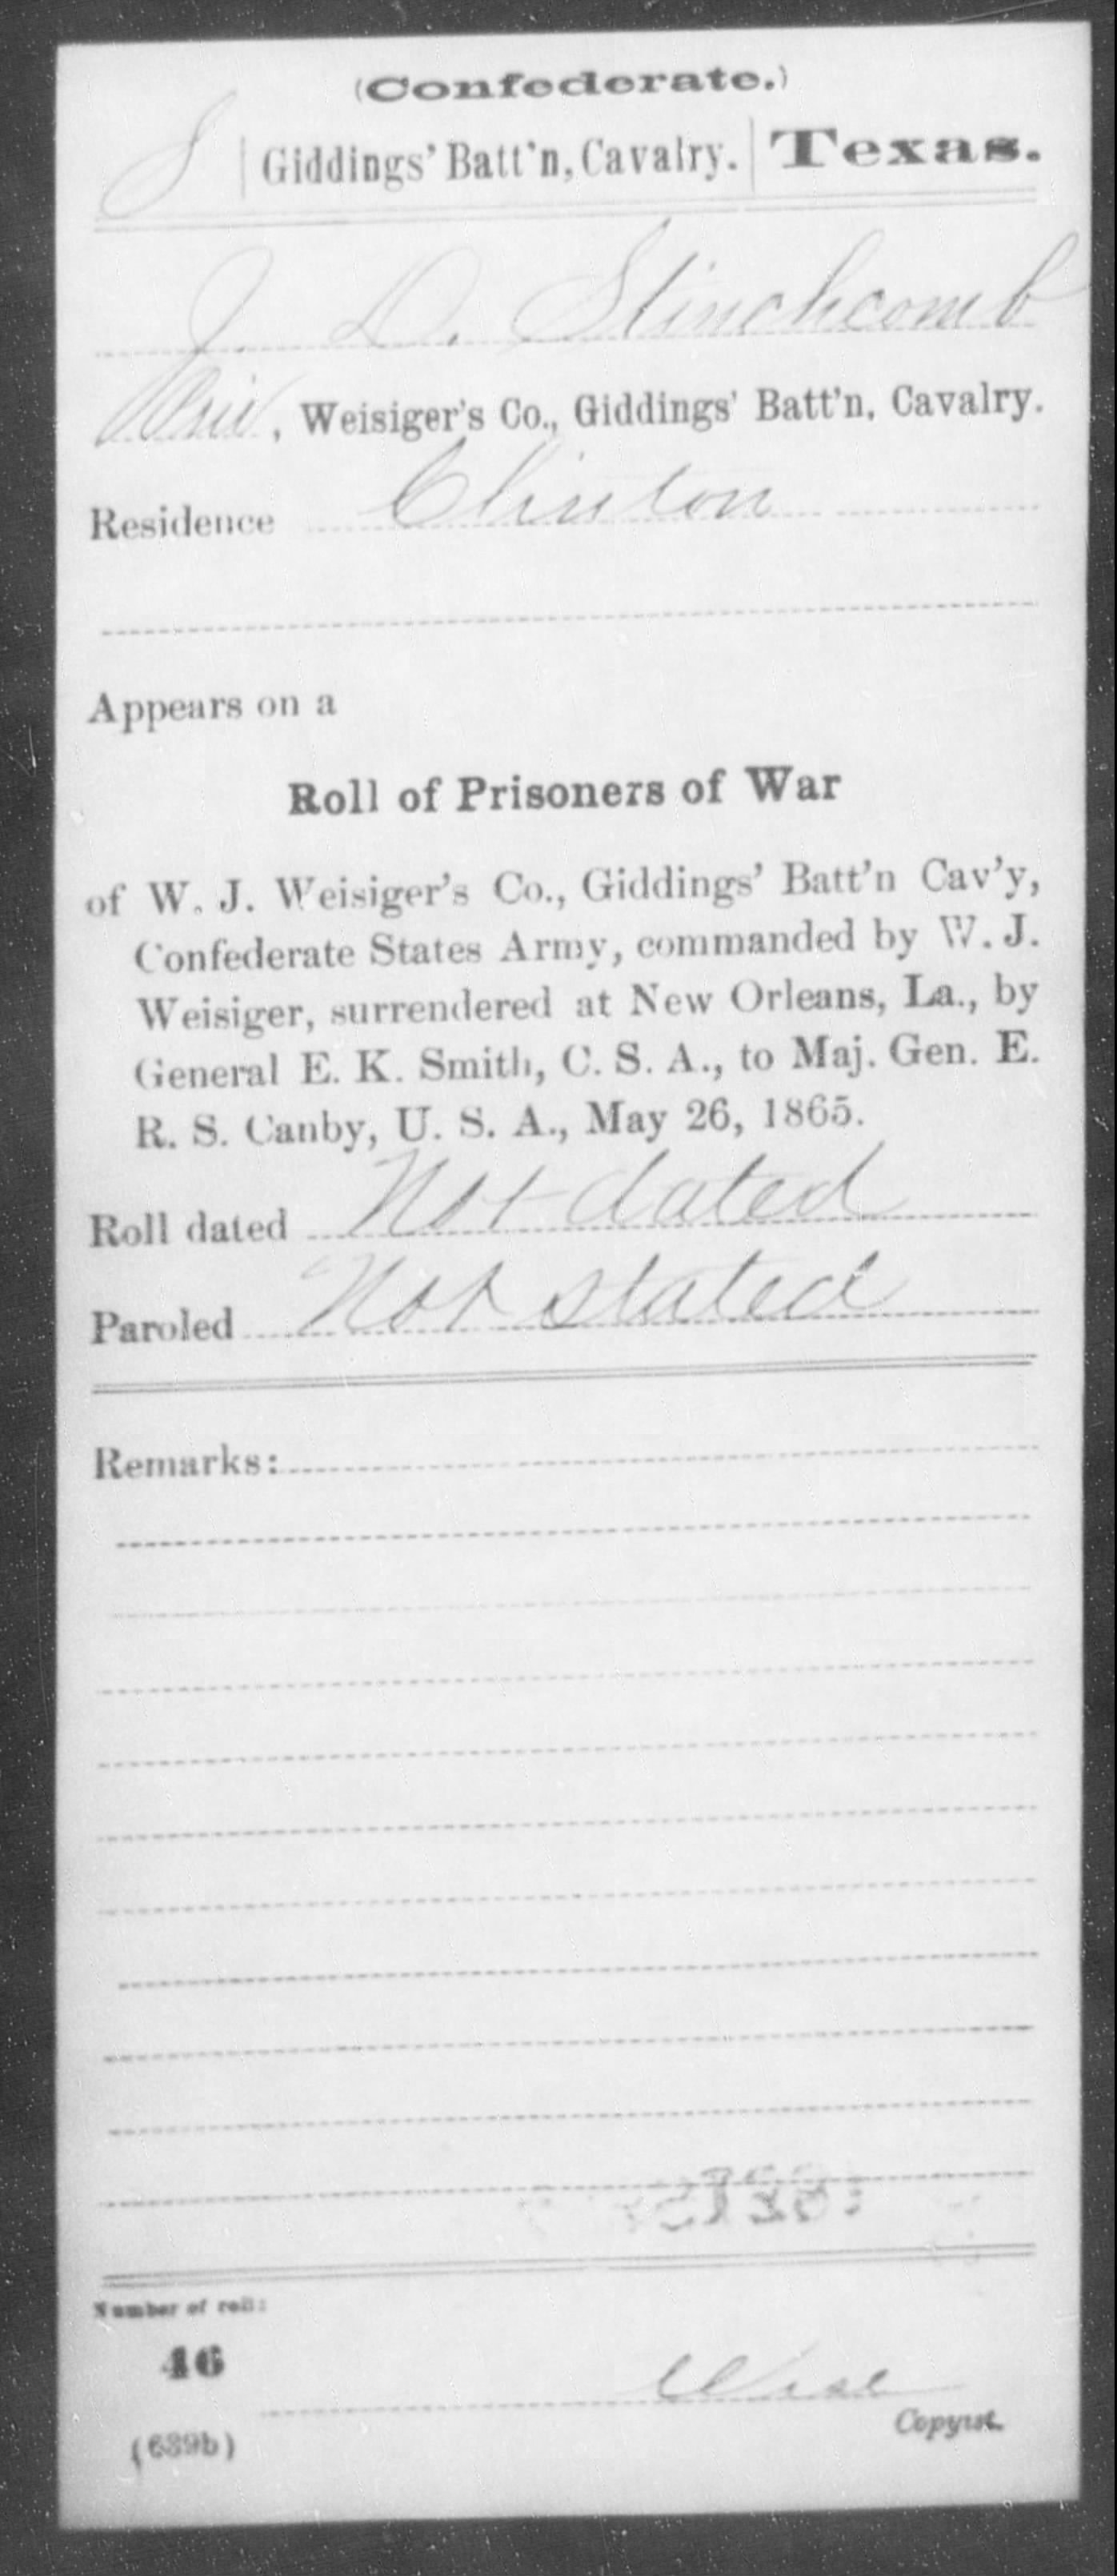 (Confederate.)
S | Giddings' Batt'n, Cavalry. | Texas.
J. D. Stinchcomb
Priv, Weisiger's Co., Giddings' Batt'n, Cavalry.
Residence Clinton
Appears on a
Roll of Prisoners of War
of W. J. Weisiger's Co., Giddings' Batt'n Cav'y,
Confederate States Army, commanded by W. J.
Weisiger, surrendered at New Orleans, La., by
General E. K. Smith, C. S. A., to Maj. Gen. E.
R. S. Canby, U. S. A., May 26, 1865.
Roll dated Not dated
Paroled Not stated
Remarks:
Number of roll:
46
(639b)
Copyist.